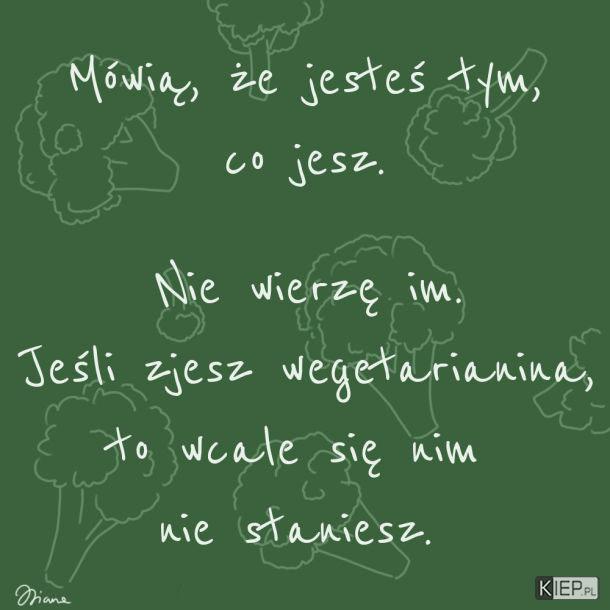 Mówią, że jesteś tym,
co jesz.
Nie wierzę im.
Jeśli zjesz wegetarianina,
to wcale się nim
nie staniesz.
KIEP.PL